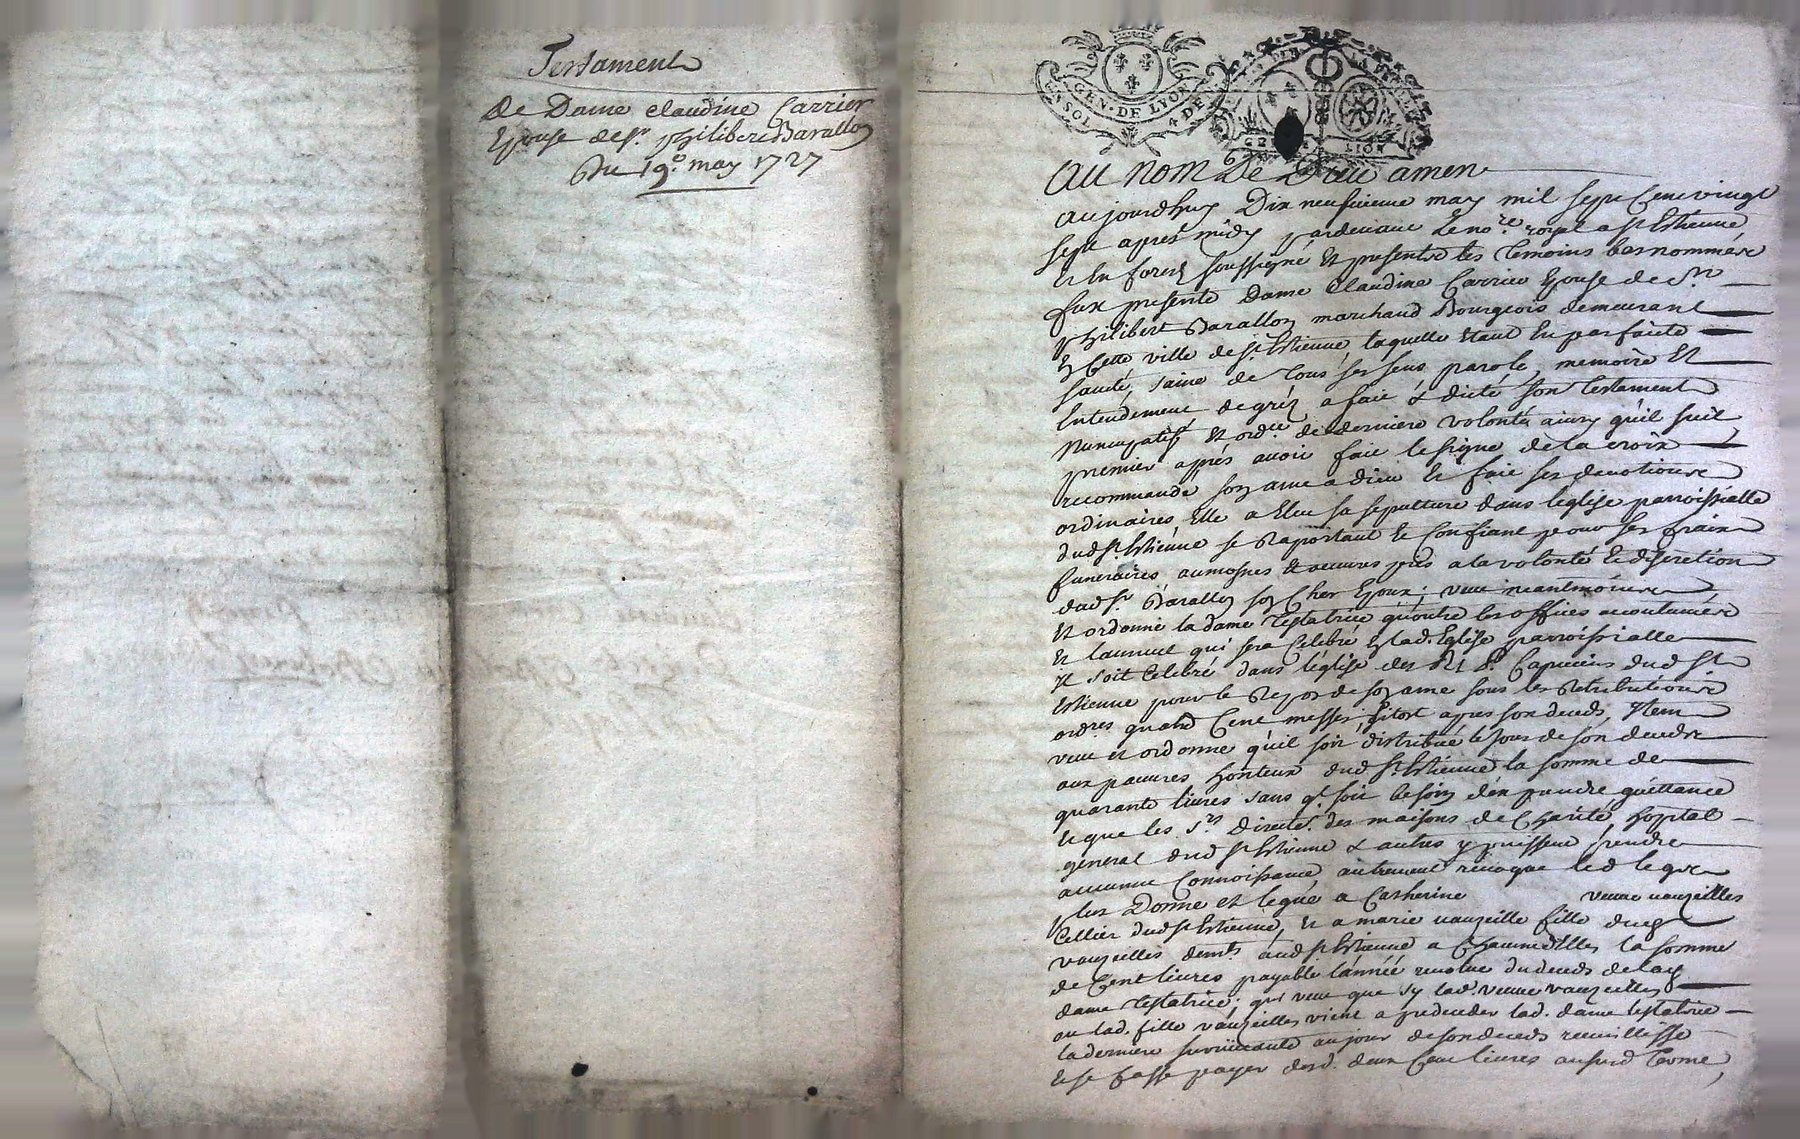 Testament
De Dame claudine Carrier
Epouse de Sr. philibert Barallon
Du 19e. may 1727
GEN. DE LYON
UN SOL 4 DE
au nom De Dieu amen
aujourdhuy Dix neufvieme may mil sept Cent vingt
sept apres midy pardevant Le nore. royal a St Estienne
et en forest soussigné et presents les temoins basnommés
fut presente Dame Claudine Carrier Epouse de Sr
philibert Barallon marchand Bourgeois demeurant
en Cette ville de St Estienne laquelle Etant En parfaite
santé, saine de tous ses sens parole, memoire Et
Entendement de gré a fait & dicté son testament
nuncupatif Et ordre. de derniere volonté ainsy qu'il suit
premier aprés avoir fait le signe de la croix
recommandé son ame a dieu Et fait ses devotions
ordinaires Elle a Eleu sa sepulture dans l'eglise parroissialle
dud St Estienne se Raportant Et Confiant pour ses fraix
funeraires, aumosnes & oeuvres pies a la volonté Et discretion
dud Sr. Barallon son Cher Epoux; veut neantmoins
Et ordonne la dame Testatrice qu'outre les offices accoutumés
Et l'annuel qui sera Celebré En lad. Eglise parroissialle
Il soit Celebré dans l'église des RR Pp. Capucins dud St
Estienne pour le Repos de son ame sous les Retributions
ordres quatre Cent messes, sitost apres son deceds, Item
veut et ordonne qu'il soit distribué le jour de son deceds
aux pauvres honteux dud St Estienne la somme de
quarante livres sans qt. soit besoin d'en prendre quittance
ni que les Srs Directrs. des maisons de Charité hopital
general dud St Estienne & autres y puissent prendre
aucune Connoissance autrement revoque led legs
plus Donne et legue a Catherine veuve vauzeilles
Cellier dud St Estienne, Et a marie vauzeille fille dud
vauzeilles demts aud St Estienne a Chacune d'Elles la somme
de Cent livres payable l'année revolue du deceds de lad
dame Testatrice; qui veut que sy lad. veuve vauzeilles
ou lad. fille vauzeilles vient a predeceder lad. dame testatrice
la derniere survivante au jour de son deceds recueillisse
et se fasse payer desd. deux Cent livres aususd terme,